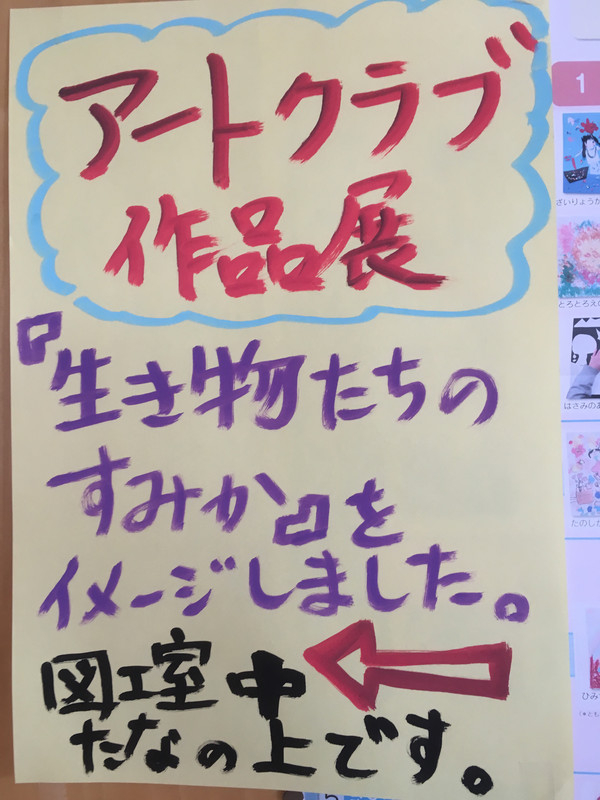 アートクラブ
作品展
『生き物たちの
すみか』を
イメージしました。
図工室中
たなの上です。
1
ざいりょうか
とろとろえの
はさみのあ
たのしか
ひみつ